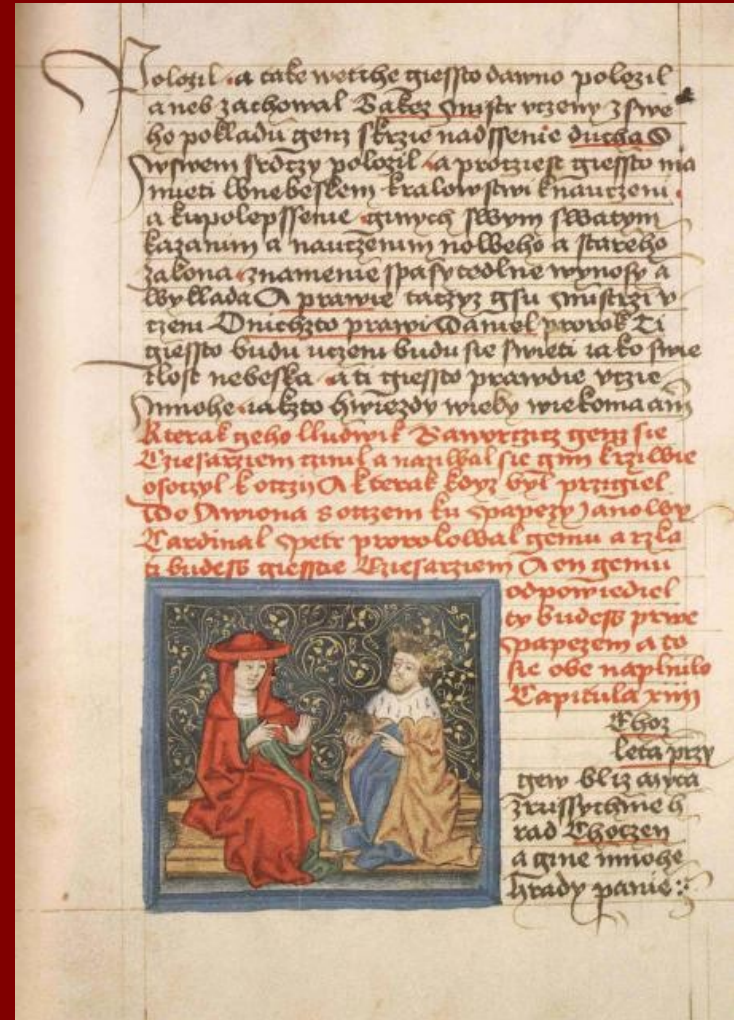 Polozil a take wetche giessto dawno polozil
a neb zachowal Takez Gmistr vczeny zswe
ho pokladu genz skrzie nadssenie ducha S
wswem srdczy polozil a protziest giessto ma
mieti wnebeskem kralowstwi knauczeni
a kupolepssenie ginych swym swatym
kazanim a nauczenim noweho a stareho
zakona znamenie spasytedlne wynosy a
wyklada A prawie taczyz gsu Gmistrzi v
czeni Onichzto prawi Daniel prorok Ti
giessto budu uczeni budu sie swieti iako swie
tlost nebeska a ti giessto prawdie vczie
mnohe iakzto hwiezdy wieky wiekoma am
Kterak geho lludwik Bawortzicz genz sie
Cziesarziem czinil a naziwal sie gym krziwie
osoczyl kotczy A kterak kdyz byl przigiel
Do Awiona sotczem ku papezy Janowy
Cardinal Petr prorokowal gemu a rzka
ti budess giesstie Cziesarziem A on gemu
odpowiediel
ty budess prwe
papezem a to
sie obe naplnilo
Capitula xiiii
Thoz
leta przy
gew bliz myta
zrussychme h
rad Choczen
a gine mnohe
hrady panie